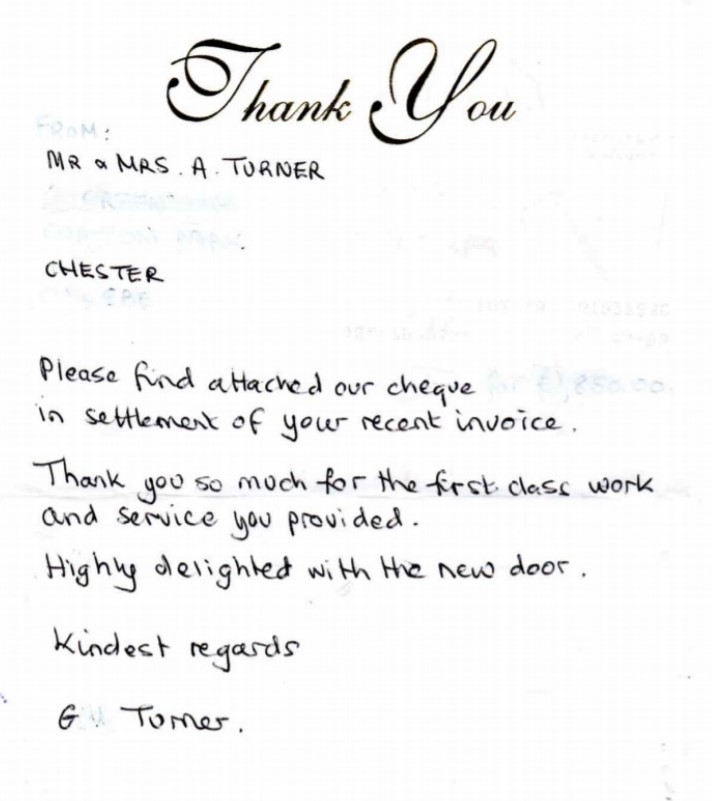 Thank You
FROM:
MR & MRS. A. TURNER
CHESTER
Please find attached our cheque
in settlement of your recent invoice.
Thank you so much for the first class work
and service you provided.
Highly delighted with the new door.
Kindest regards
G Turner.